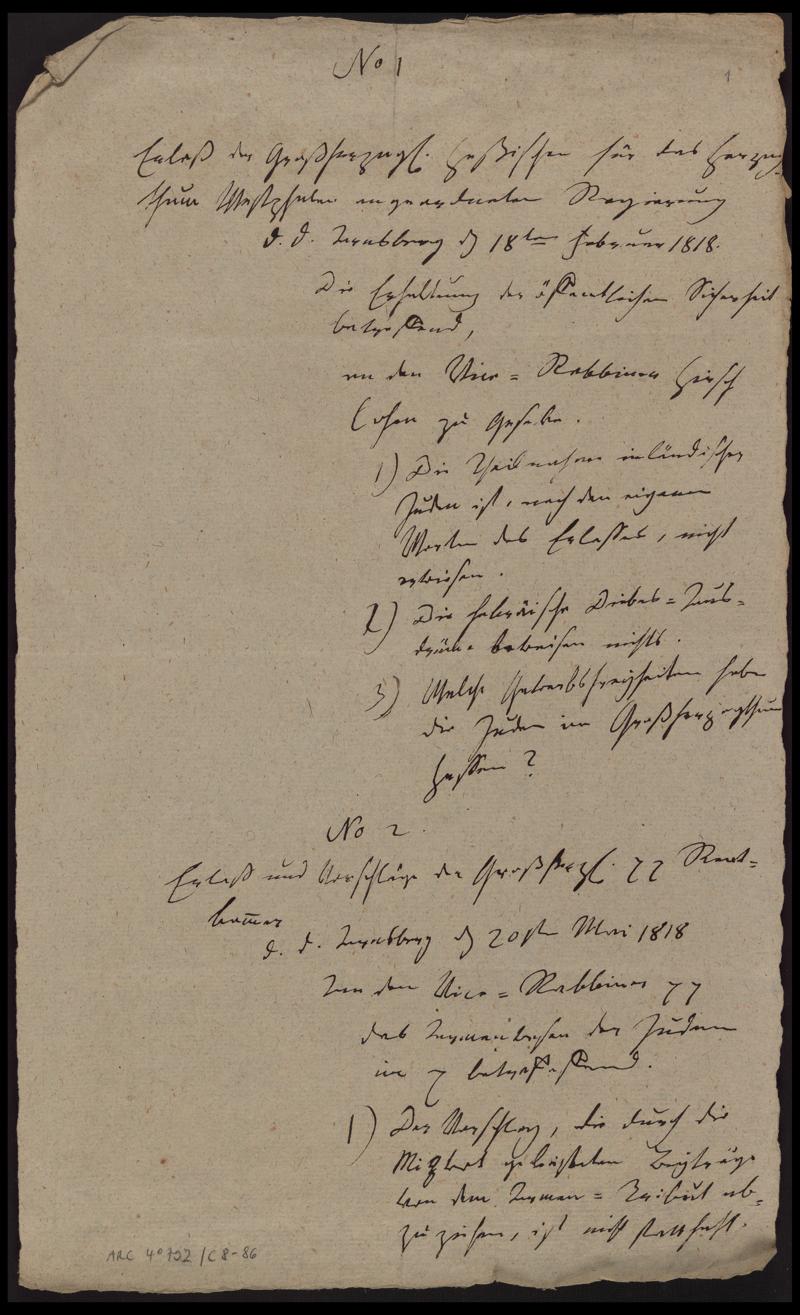 No 1
1
Erlaß der Großherzogl. Hessischen für das Herzog
thum Westphalen angeordneten Regierung
d. d. Arnsberg d 18ten Februar 1818.
Die Erhaltung der öffentlichen Sicherheit
betreffend,
an den Vice=Rabbiner Hirsch
Cohen zu Geseke.
1) Die Theilnahme inländischer
Juden ist, nach den eigenen
Worten des Erlasses, nicht
erwiesen.
2) Die hebräische Diebes=Aus-
drücke beweisen nichts.
3) Welche Gewerbsfreyheiten haben
die Juden im Großherzogthum
Hessen?
No 2.
Erlaß und Vorschläge der Großherzgl. Rent=
kammer
d. d. Arnsberg d 20ste Mai 1818
An den Vice=Rabbiner
das Armenwesen der Juden
in betreffend.
1) Der Vorschlag, die durch die
geleisteten Beyträge
von dem Armen=Tribut ab=
zuziehen, ist nicht statthaft.
ARC 4° 792/C8-86